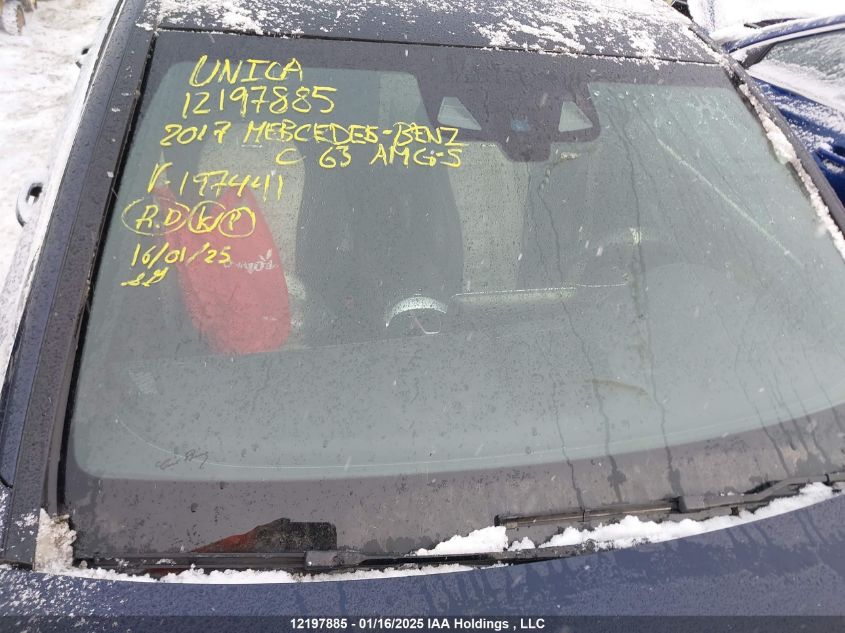 UNICA
12197885
2017 MERCEDES-BENZ
C 63 AMG-S
V.197441
R.D K P
16/01/25
12197885 - 01/16/2025 IAA Holdings , LLC